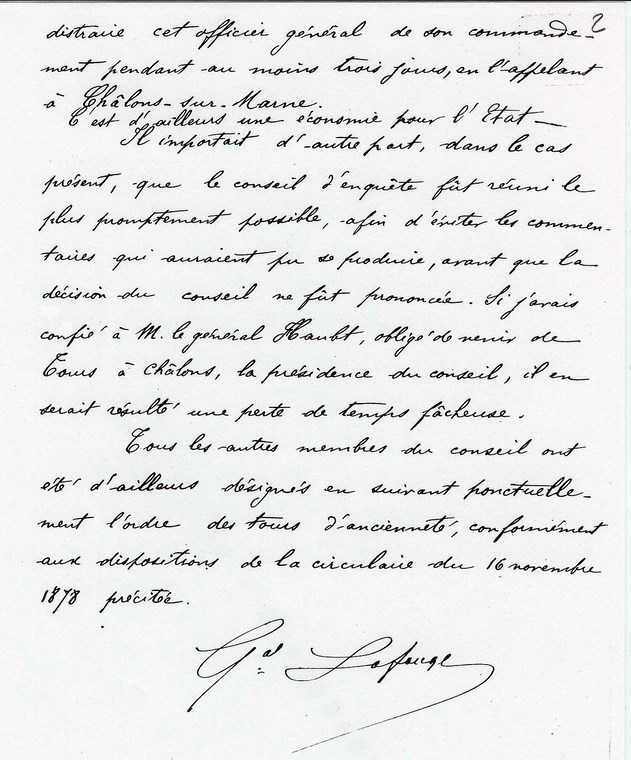 2
distraire cet officier général de son commande-
ment pendant au moins trois jours, en l'appelant
à Châlons-sur-Marne.
C'est d'ailleurs une économie pour l'Etat—
Il importait d'autre part, dans le cas
présent, que le conseil d'enquête fût réuni le
plus promptement possible, afin d'éviter les commen-
taires qui auraient pu se produire, avant que la
décision du conseil ne fût prononcée. Si j'avais
confié à M. le général Haubt, obligé de venir de
Tours à Châlons, la présidence du conseil, il en
serait résulté une perte de temps fâcheuse.
Tous les autres membres du conseil ont
été d'ailleurs désignés en suivant ponctuelle-
ment l'ordre des tours d'ancienneté, conformément
aux dispositions de la circulaire du 16 novembre
1878 précitée.
Gal Lafouge